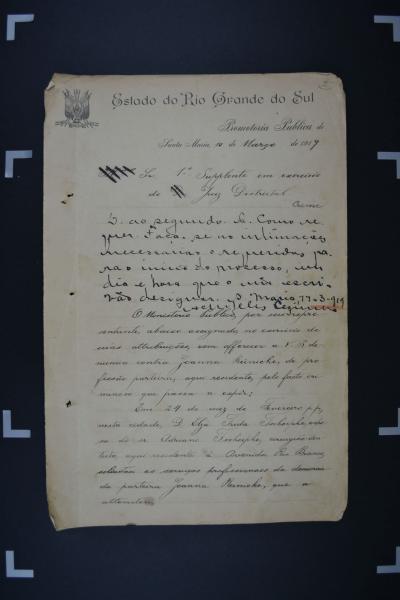 Estado do Rio Grande do Sul
Promotoria Publica de
Santa Maria 10 de Março de 1919
Sr. 1º Supplente em exercicio
do Juiz Districtal
Crime
D. ao segundo. A. Como re
quer. Faça-se no intimações
necessarias e requeridas, pa
ra o inicio do processo, em
dia e hora que o escri
vão designar. S. Maria, 11-3-919
O Ministerio Publico, por seu repre
sentante, abaixo assignado, no exercicio de
suas attribuições, vem offerecer a V. S. de
nuncia contra Joanna, de pro
fissão parteira, aqui residente, pelo facto cri
minoso que passa a expôr;
Em 24 do mez de Fevereiro p.p,
nesta cidade, D. Elza Frida, espo
sa do sr. Adriano, cirurgião den
tista, aqui residente á Avenida Rio Branco,
os serviços profissionaes da denuncia
da parteira Joanna, que a
attendeu